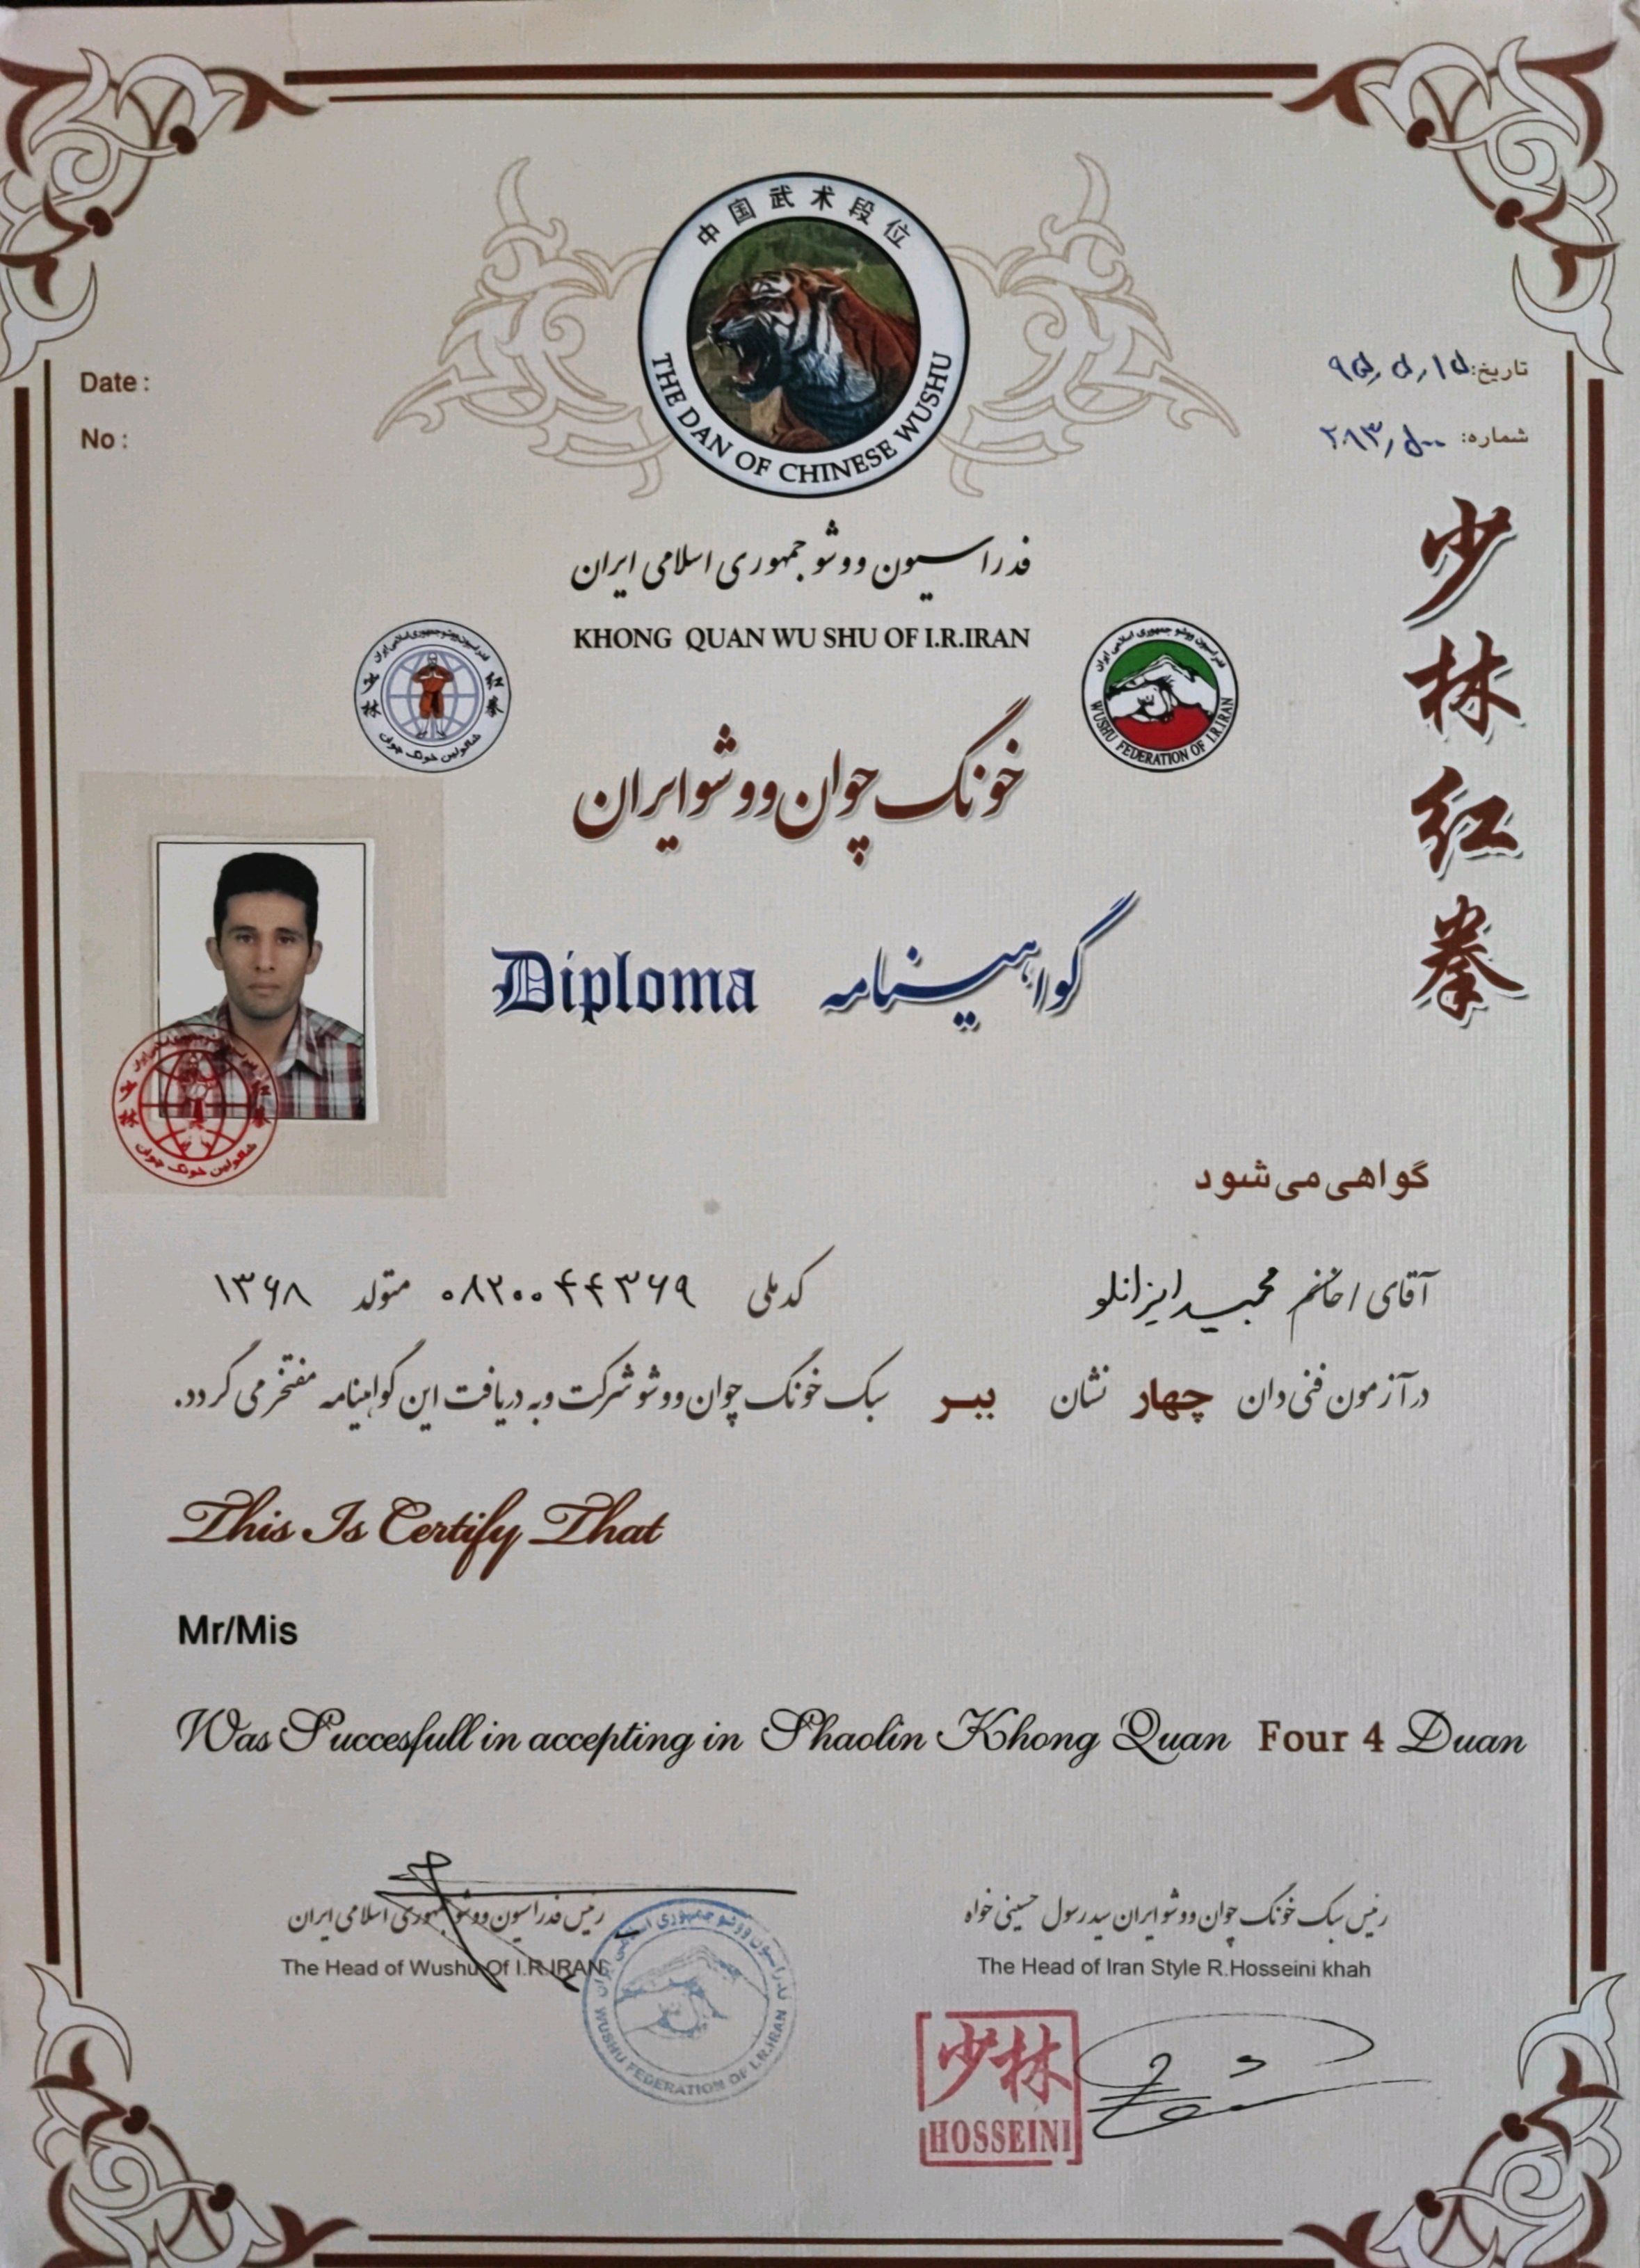 中国武术段位
THE DAN OF CHINESE WUSHU
Date :
No :
تاریخ: ۹۵٫۵٫۱۵
شماره: ۲۸۳٫۵۰۰
فدراسیون ووشو جمهوری اسلامی ایران
KHONG QUAN WU SHU OF I.R.IRAN
فدراسیون ووشو جمهوری اسلامی ایران
少林 红拳
شائولین خونگ چوان
فدراسیون ووشو جمهوری اسلامی ایران
WUSHU FEDERATION OF I.R.IRAN
少林红拳
خونگ چوان ووشو ایران
Diploma گواهینامه
少林 红拳
شائولین خونگ چوان
گواهی می شود
آقای / خانم مجید ایزانلو کد ملی ۰۸۲۰۰۴۴۳۶۹ متولد ۱۳۶۸
در آزمون فنی دان چهار نشان ببر سبک خونگ چوان ووشو شرکت و به دریافت این گواهینامه مفتخر می گردد.
This Is Certify That
Mr/Mis
Was Succesfull in accepting in Shaolin Khong Quan Four 4 Duan
رئیس سبک خونگ چوان ووشو ایران سید رسول حسینی خواه
The Head of Iran Style R.Hosseini khah
رئیس فدراسیون ووشو جمهوری اسلامی ایران
The Head of Wushu Of I.R.IRAN
فدراسیون ووشو جمهوری اسلامی ایران
WUSHU FEDERATION OF I.R.IRAN
少林
HOSSEINI